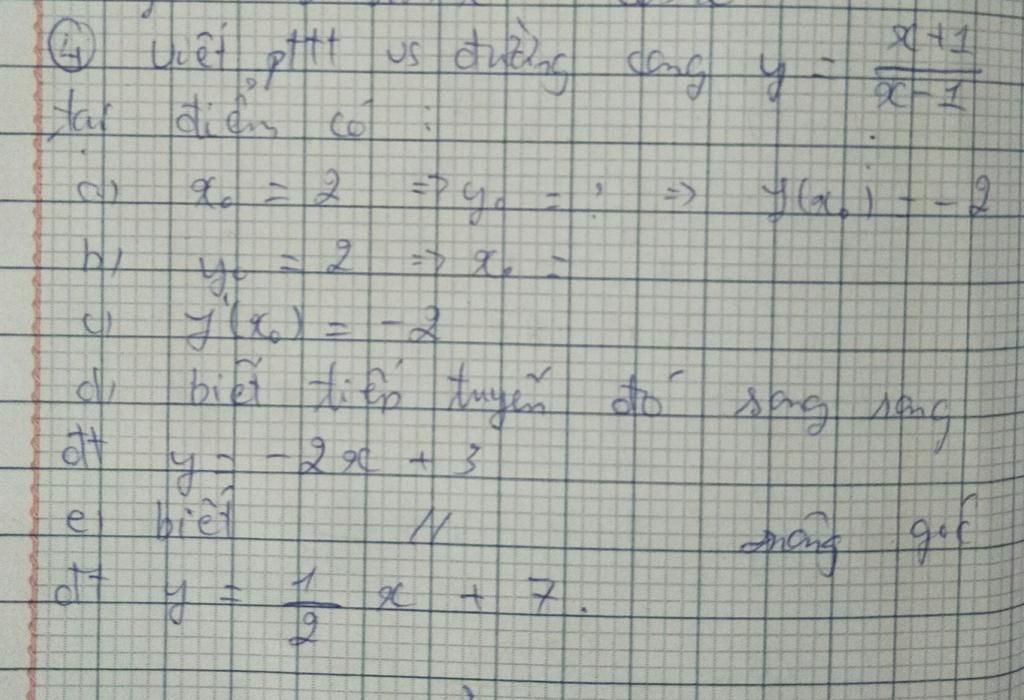 ④ Viết pttt vs đường cong y = x+1 / x-1
tại điểm có :
a) x₀ = 2 => y₀ = ? => y'(x₀) = -2
b) y₀ = 2 => x₀ =
c) y'(x₀) = -2
d) biết tiếp tuyến đó song song
đt y = -2x + 3
e) biết // vuông góc
đt y = 1/2 x + 7.